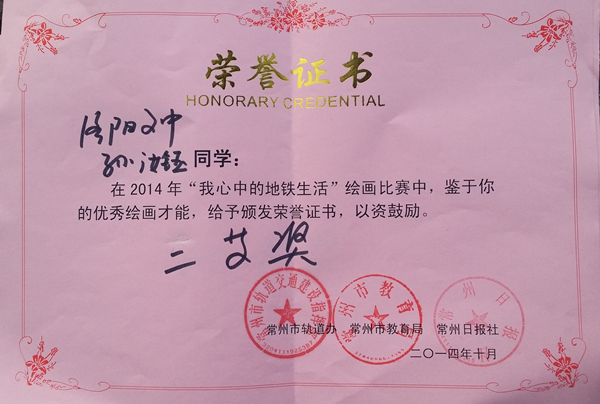 荣誉证书
HONORARY CREDENTIAL
洛阳文中
孙 同学：
在2014年“我心中的地铁生活”绘画比赛中，鉴于你
的优秀绘画才能，给予颁发荣誉证书，以资鼓励。
二等奖
常州市轨道交通建设指挥部
常州市教育局
常州日报
常州市轨道办 常州市教育局 常州日报社
二〇一四年十月